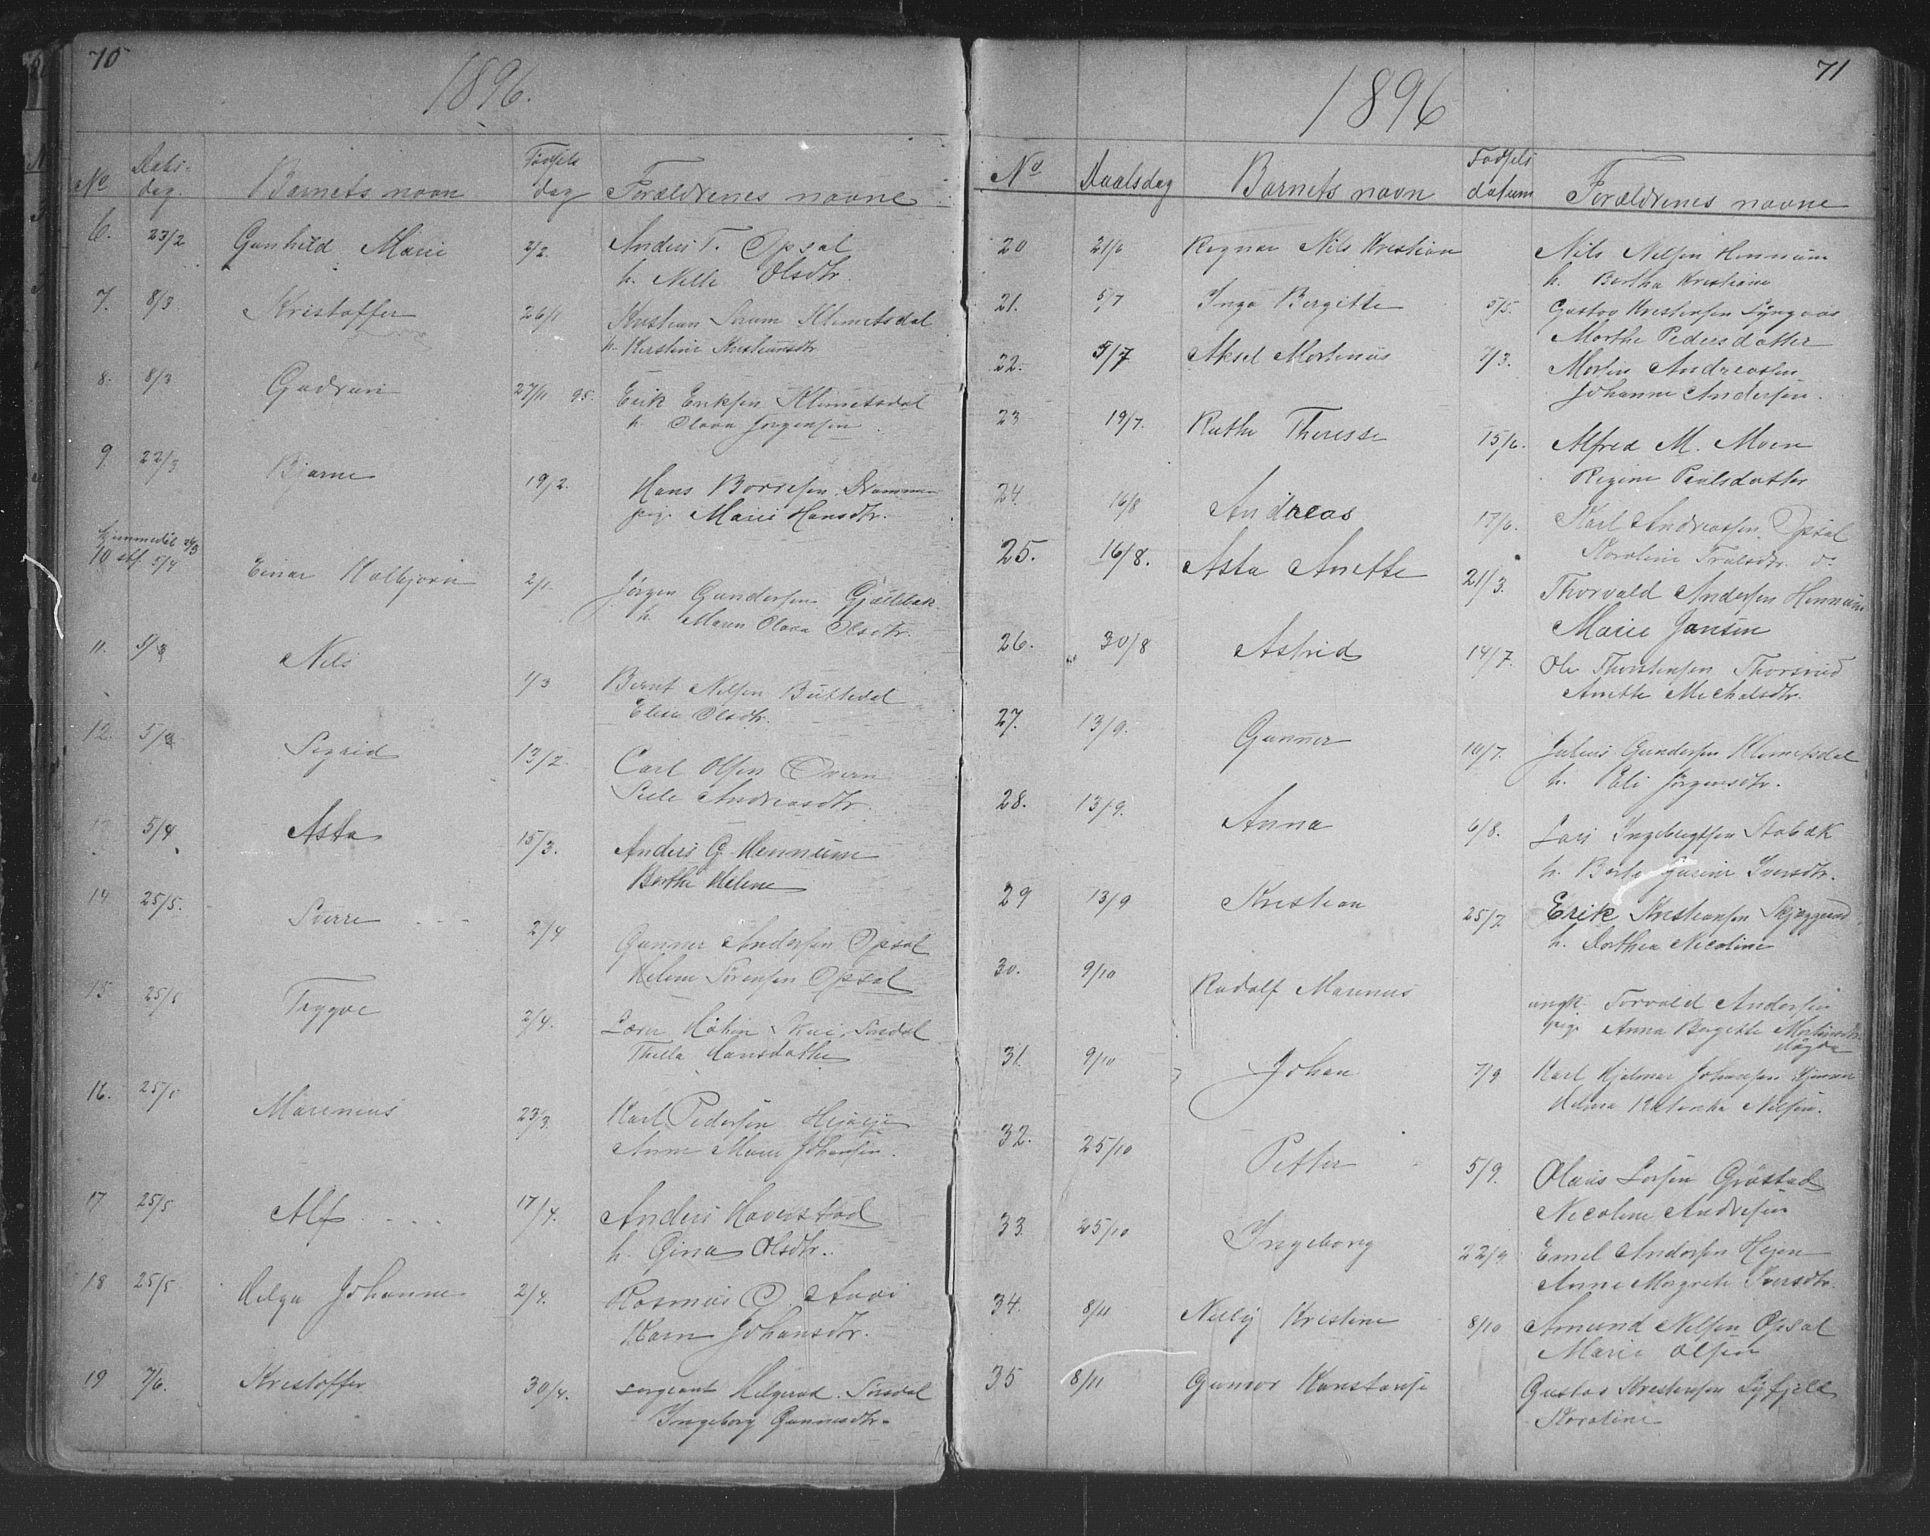 70
1896.
No Daabsdag. Barnets navn Fødselsdag Forældrenes navne
6. 23/2 Gunhild Marie 2/2. Anders T. Opsal
h. Nille Olsdtr.
7. 8/3 Kristoffer 26/1 Kristian Klemetsdal
h. Kirstine Kristiansdtr
8. 8/3 Gudrun 27/11 95. Erik Eriksen Klemetsdal
h. Olava Jørgensen
9. 22/3 Bjarne 19/2. Hans Borresen Drammen
pig. Marie Hansdtr.
hjemmedøbt
10 stf. 5/4 Einar Kolbjørn 2/1. Jørgen Gundersen
h. Maren Olava Olsdtr.
11. Nils 1/3 Bernt Nilsen Buttedal
Elise Olsdtr.
12. Sigrid 13/2. Carl Olsen Overn
Andreasdtr.
13 5/4 Asta 15/3. Anders G. Hennum
Berthe Helene
14 25/5. Sverre 2/4 Gunner Andersen Opsal
Helene Sørensen Opsal
15 25/5 Trygve 2/4. Sørsdal
Thilla Hansdatter
16. 25/5 Marenius 23/3. Karl Pedersen
Anne Marie Johansen.
17 25/5 Alf 17/4. Anders Haverstad
h. Gina Olsdtr.
18 25/5 Helga Johanne 2/4. Rasmus O.
Karn Johansdtr.
19 7/6. Kristoffer 30/4. sergeant Helgerud
Ingeborg Gunnersdtr.
71
1896
No Daabsdag Barnets navn Fødselsdatum Forældrenes navne
20 21/6 Regnar Nils Kristian Nils Nilsen Hennum
h. Bertha Kristiane
21. 5/7 Inga Bergitte 5/5. Gustav Kristensen
Marthe Pedersdatter
22. 5/7 Aksel Martinius 7/3. Martin Andreassen
Johanne Andersen.
23 19/7. Ruth Theresse 15/6. Alfred M. Moen
Regine Paalsdatter
24. 16/8 Andreas 17/6. Karl Andreassen Opsal
Karoline Trulsdtr. do
25. 16/8. Asta Anette 21/3. Thorvald Andersen Hennum
Marie Jansen
26. 30/8 Astrid 14/7. Ole Thorstensen Thorsrud
Anette Michelsdtr.
27. 13/9. Gunner 10/7. Julius Gundersen Klemetsdal
h. Eli Jørgensdtr.
28. 13/9. Anna 6/8. Lars Ingebregtsen Stabæk
h. Iversdtr.
29 13/9 Kristian 25/7 Erik Kristiansen
h. Dorthea Nicoline
30. 9/10 Rudolf Marenius ungk. Torvald Andersen
pige Anna Bergitte
31. 9/10 Johan 7/9 Karl Hjalmar Johansen
Nilsen.
32. 25/10 Petter 5/9. Olaus Larsen Grøstad
Nicoline Andresen
33. 25/10 Ingeborg 22/9 Emil Andersen Hejen
Anne Margrete Iversdtr.
34. 8/11 Nelly Kristine 8/10 Amund Nilsen Opsal
Marie Olsen
35 8/11 Gunvor Konstanse Gustav Kristensen
Karoline